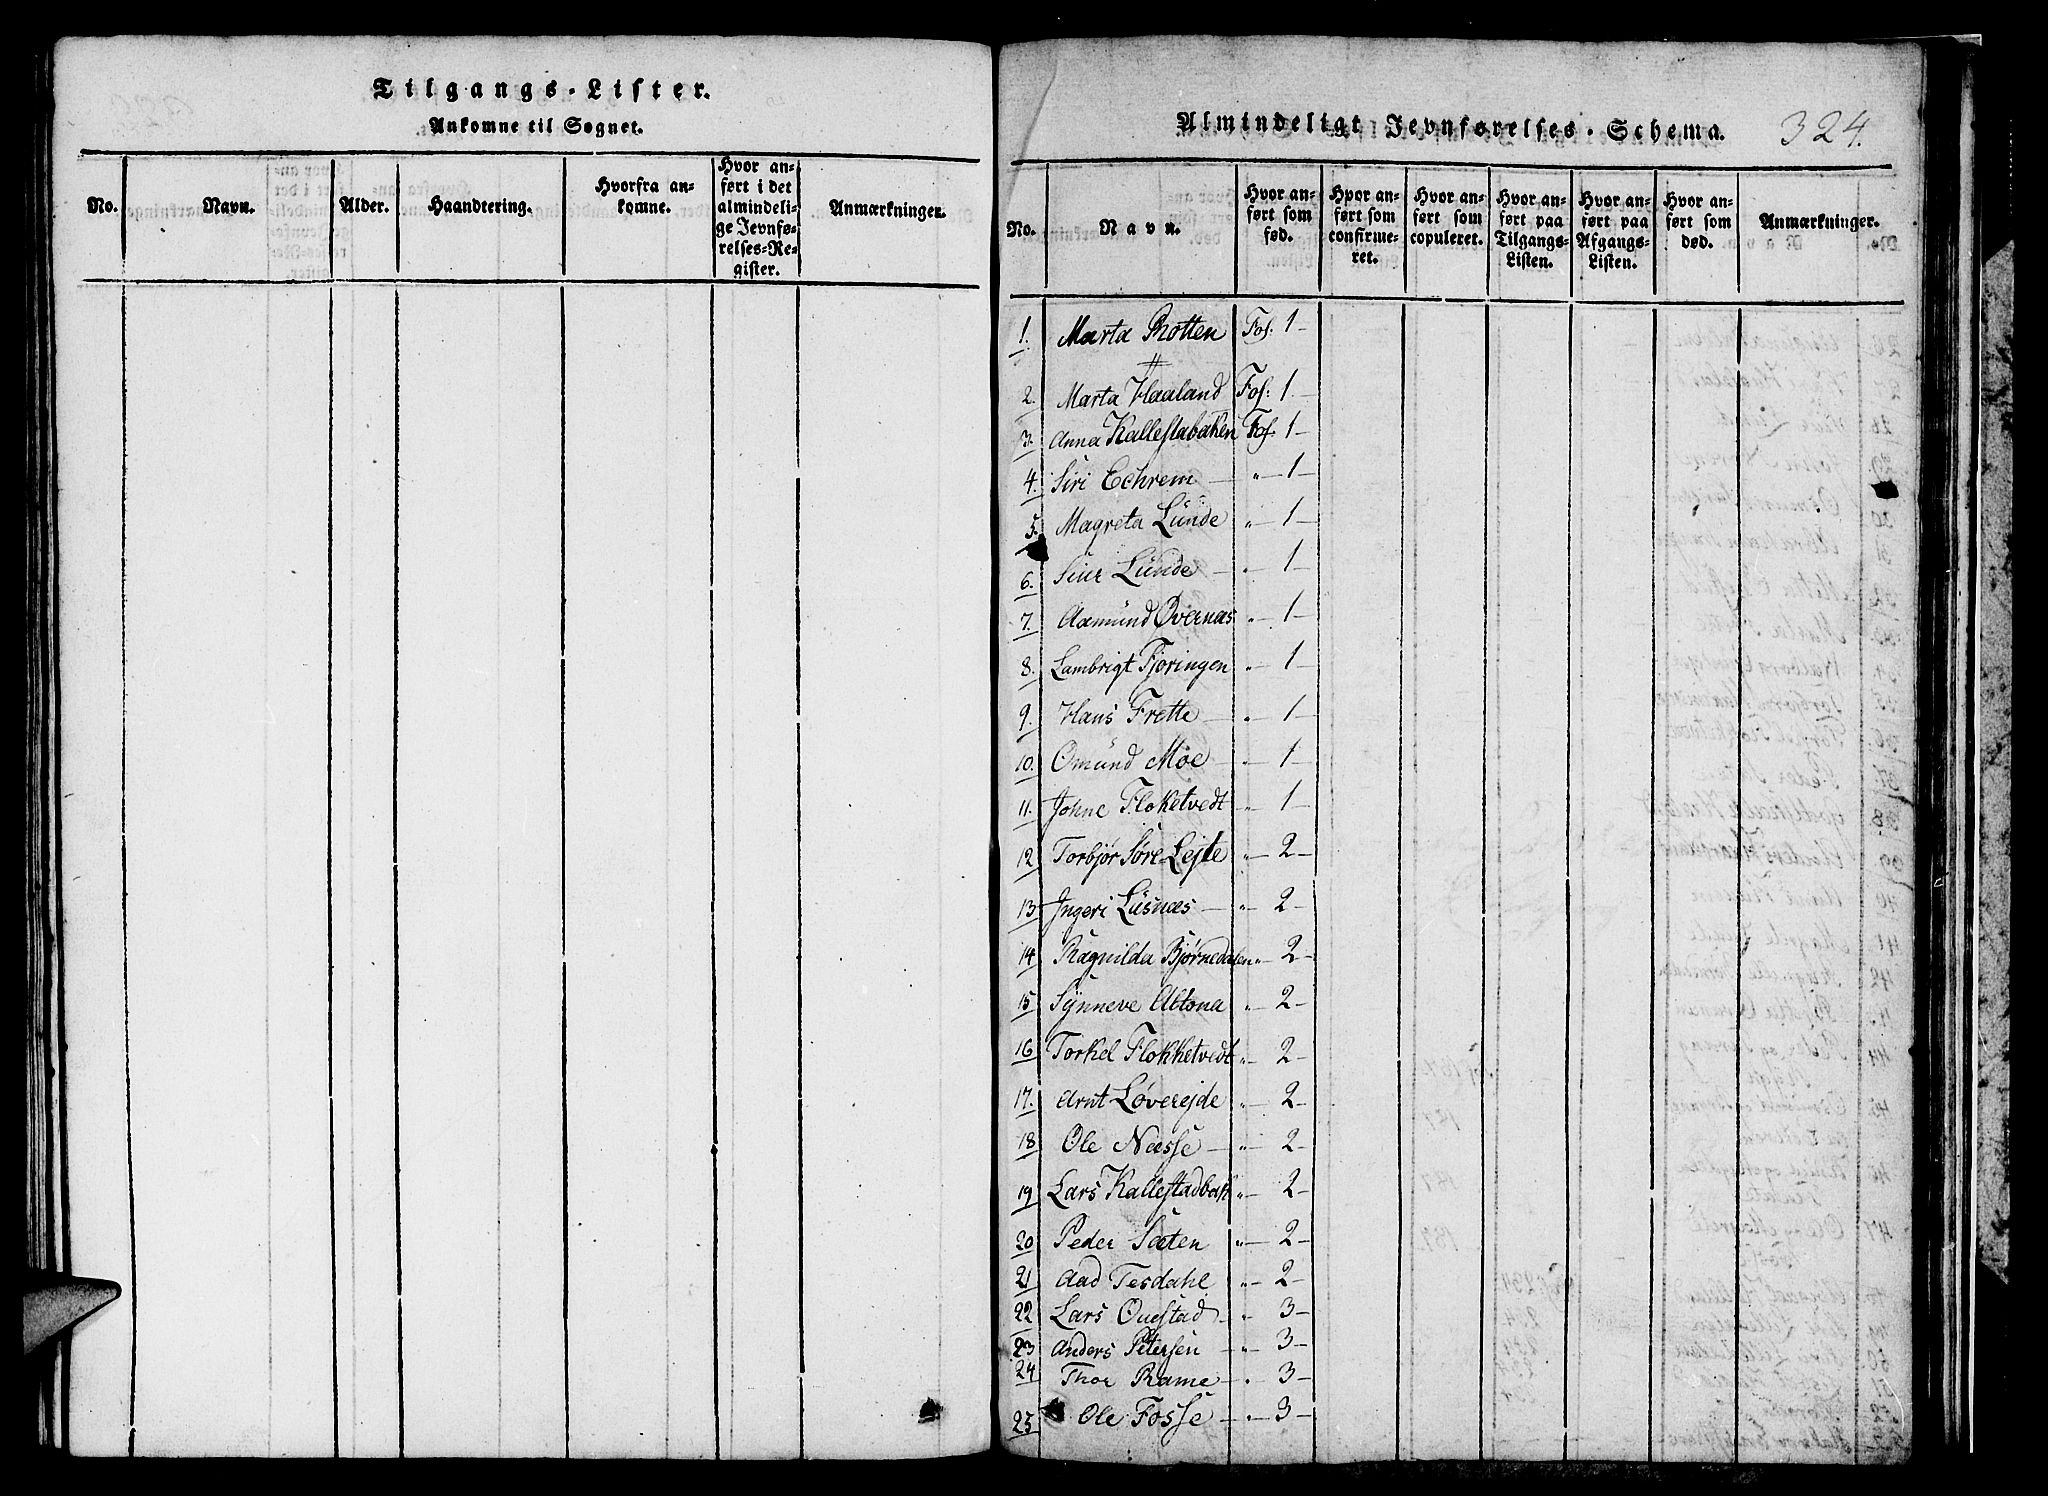 Tilgangs-Lister.
Ankomne til Sognet.
No. Navn. Alder. Haandtering. Hvorfra ankomne. Hvor anført i det almindelige Jevnførelses-Register. Anmærkninger.
Almindeligt Jevnførelses-Schema. 324.
No. Navn. Hvor anført som fød. Hvor anført som confirmeret. Hvor anført som copuleret. Hvor anført paa Tilgangs-Listen. Hvor anført paa Afgangs-Listen. Hvor anført som død. Anmærkninger.
1. Marta Rotten Fol. 1-
2. Marta Haaland Fol. 1.-
3. Anna Kallestabaken Fol. 1-
4. Siri Echrem - " - 1-
5. Magreta Lünde " - 1-
6. Siur Lünde - " - 1-
7. Aamünd Øvernæs " - 1-
8. Lambrigt Fjøringen " - 1-
9. Hans Frette - " - 1-
10. Omünd Moe - " - 1-
11. Johne Floketvedt " - 1-
12 Torbjør Søre Lejte " - 2-
13 Ingeri Lüsnæs - " - 2-
14 Ragnilda Bjørnedalen " - 2-
15 Synneve Altona " - 2-
16 Torkel Flokketvedt " - 2-
17. Arnt Løverejde " - 2-
18 Ole Næsse - " - 2-
19 Lars Kallestadbak " - 2-
20 Peder Sæten " - 2-
21 Aad Tesdahl " - 2-
22 Lars Ouestad - " - 3-
23 Anders Petersen " - 3-
24 Thor Rame - " - 3-
25 Ole Fosse - " - 3-